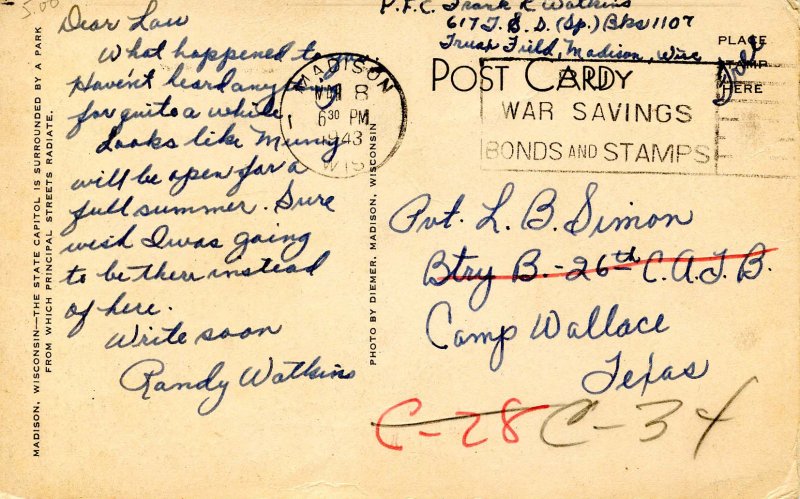 5.00
Dear Law
What happened to you
Haven't heard anything
for quite a while
Looks like Muny
will be open for a
full summer. Sure
wish I was going
to be there instead
of here.
Write soon
Randy Watkins
MADISON, WISCONSIN—THE STATE CAPITOL IS SURROUNDED BY A PARK
FROM WHICH PRINCIPAL STREETS RADIATE.
PHOTO BY DIEMER, MADISON, WISCONSIN
P.F.C. Frank R. Watkins
617 T.S.S. (Sp.) Bks 1107
Truax Field, Madison, Wisc
POST CARD
PLACE
STAMP
HERE
MADISON
MAR 8
6 30 PM
1943
WIS
BUY
WAR SAVINGS
BONDS AND STAMPS
Pvt. L. B. Simon
Btry B. - 26th C.A.T.B.
Camp Wallace
Texas
C-28 C-34